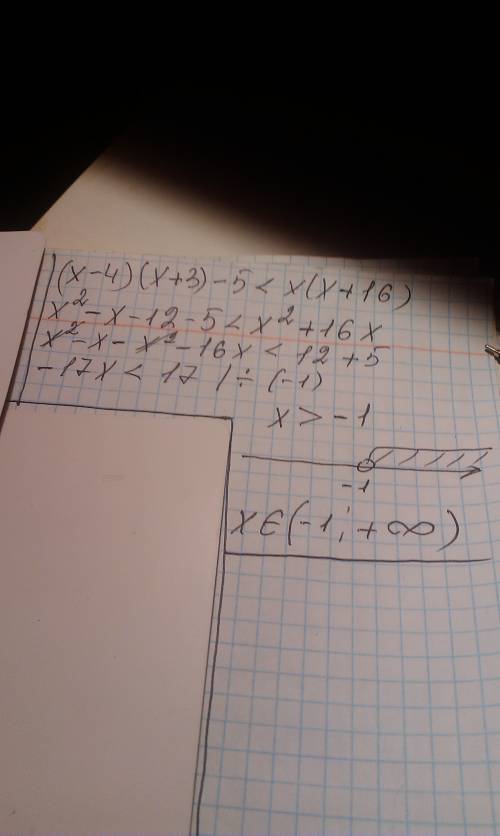 (x-4)(x+3)-5<x(x+16)
x²-x-12-5<x²+16x
x²-x-x²-16x<12+5
-17x<17 /÷(-1)
x>-1
-1
x∈(-1;+∞)